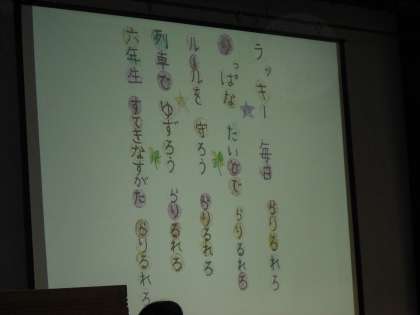 ラッキー 毎日 らりるれろ
りっぱな たいどで らりるれろ
ルールを 守ろう らりるれろ
列車で ゆずろう らりるれろ
六年生 すてきなすがた らりるれろ